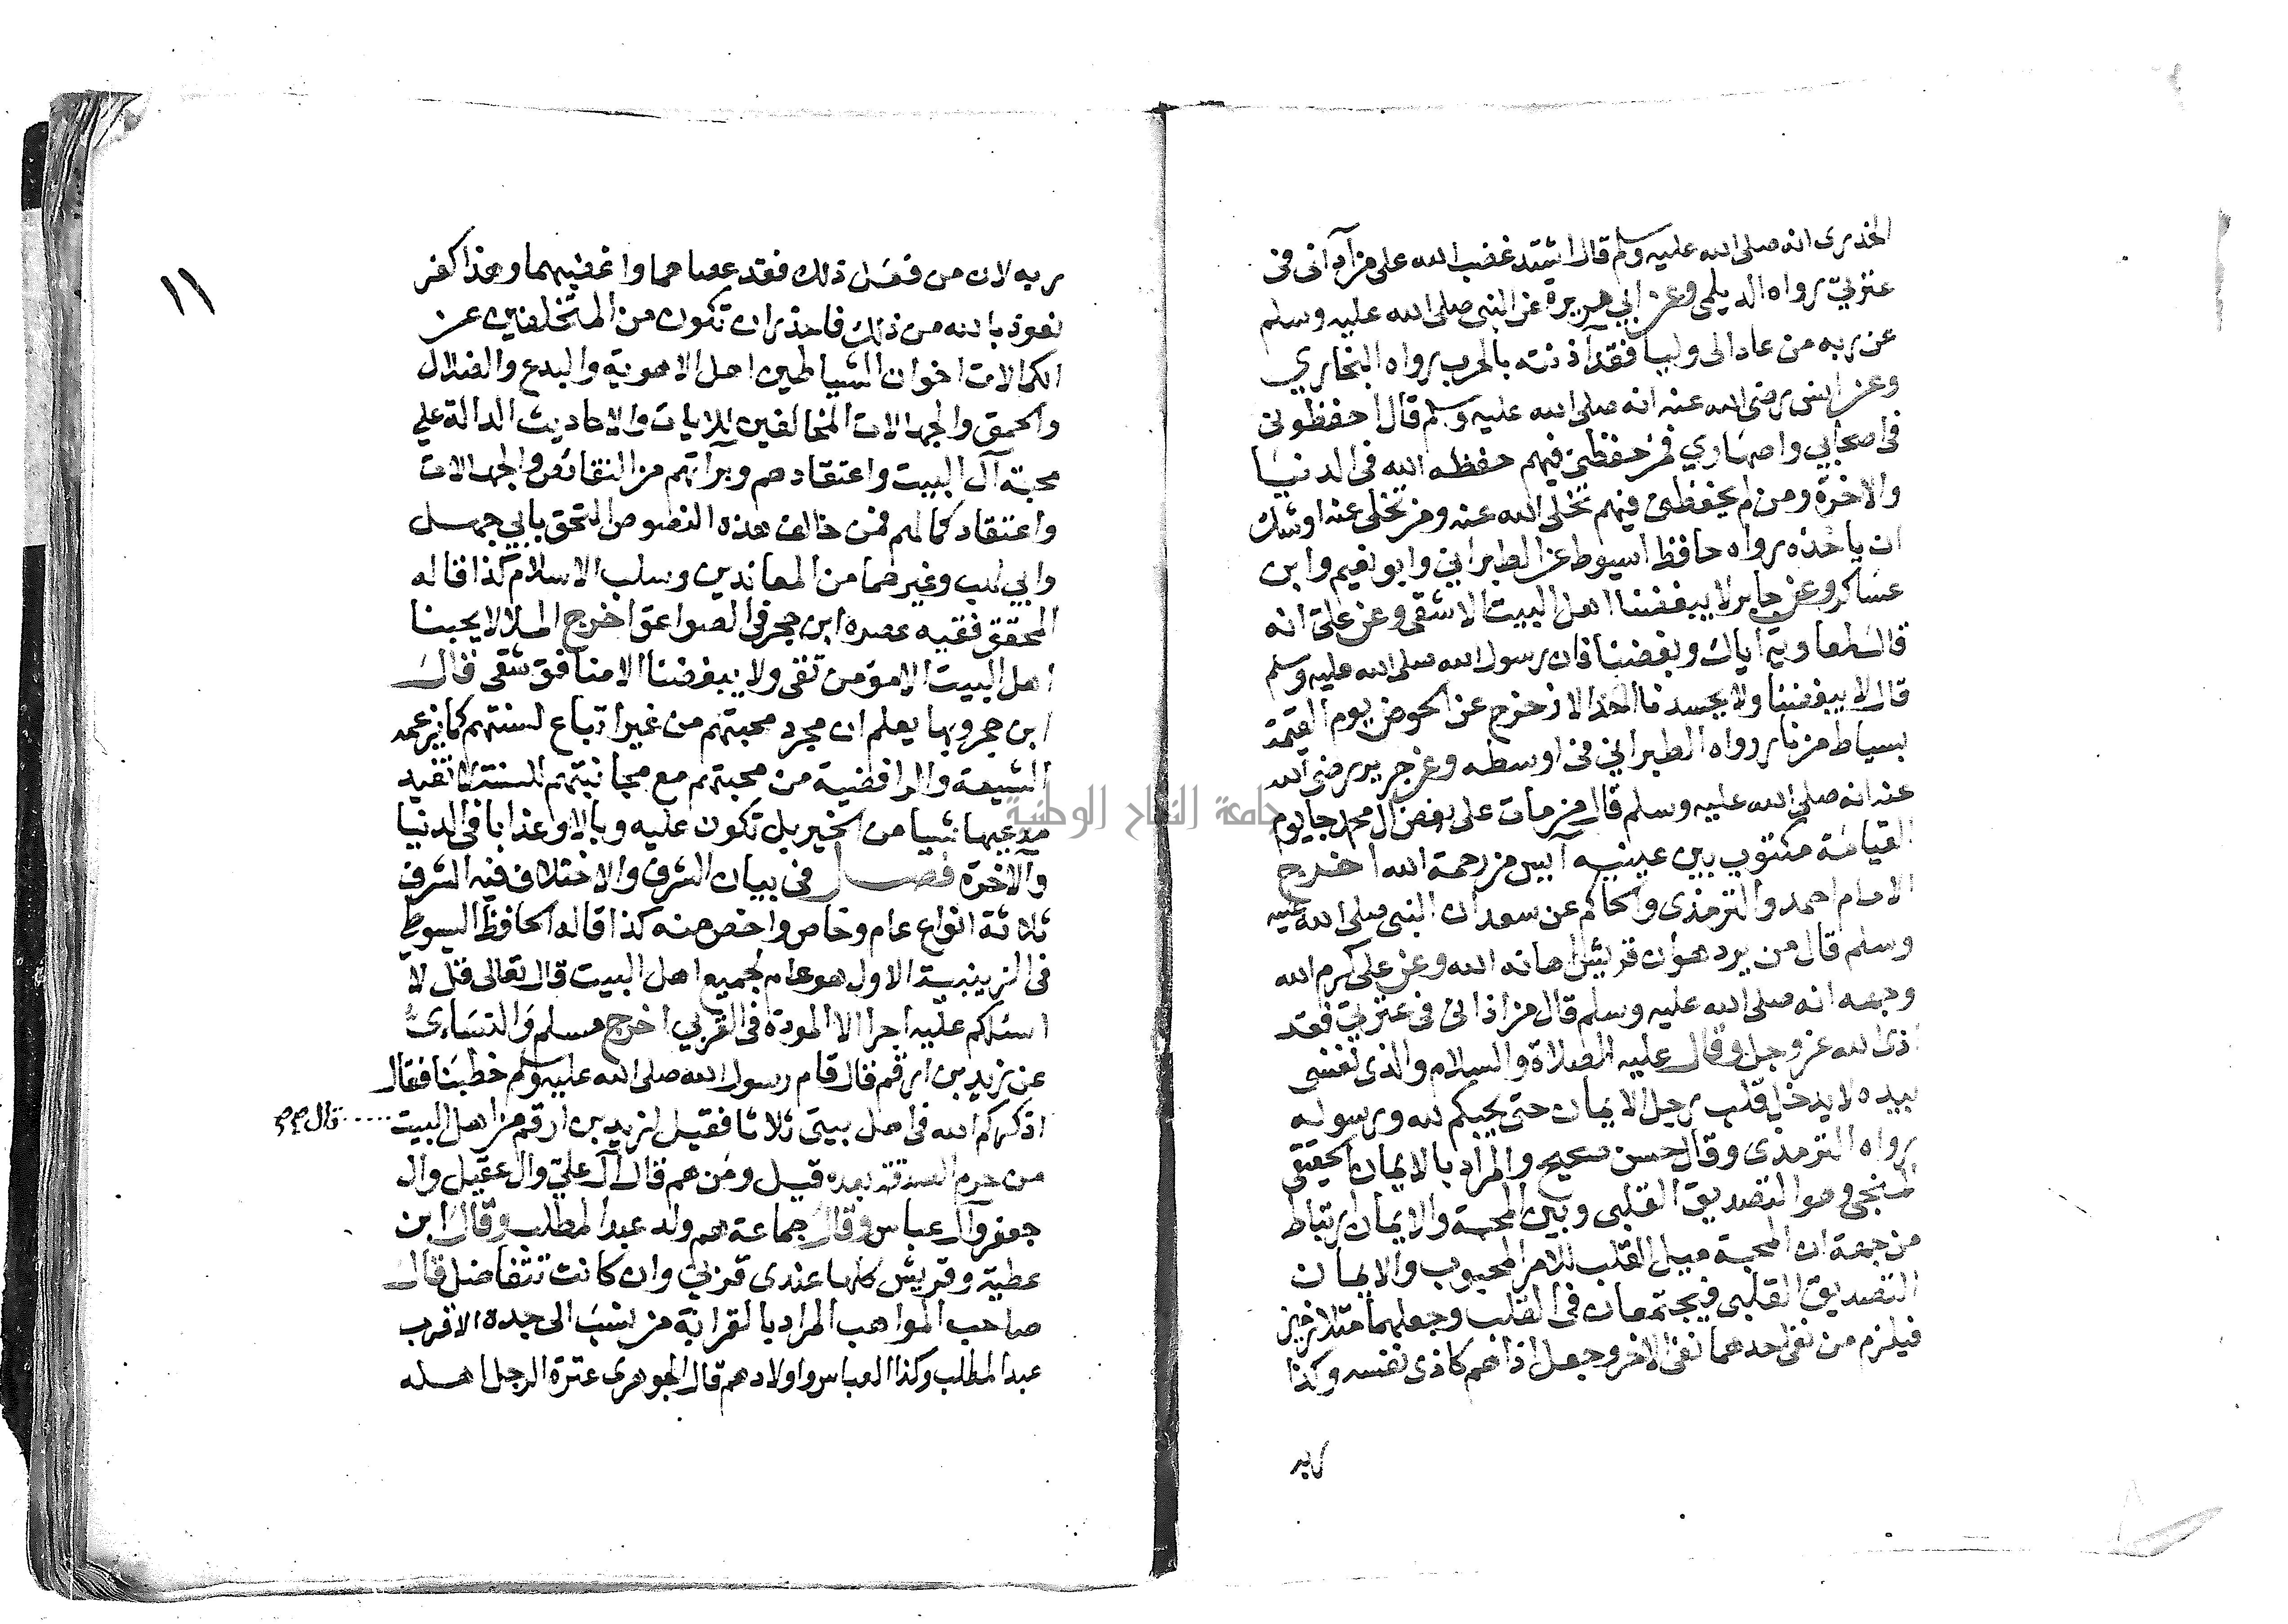 الخدرى انه صلى الله عليه وسلم قال اشتد غضب الله على من آذانى فى
عترتي رواه الديلمى وعن ابي هريرة عن النبى صلى الله عليه وسلم
عن ربه من عادالى وليا فقد آذنته بالحرب رواه البخاري
وعن انس رضى الله عنه انه صلى الله عليه وسلم قال احفظونى
فى اصحابي واصهاري فمن حفظنى فيهم حفظه الله فى الدنيا
والاخرة ومن لم يحفظنى فيهم تخلى الله عنه ومن تخلى عنه اوشك
ان ياخذه رواه حافظ اسيوط عن الطبراني وابو نعيم وابن
عساكر وعن جابر لا يبغضنا اهل البيت الاشقى وعن على انه
قال لمعاوية اياك وبغضنا فان رسول الله صلى الله عليه وسلم
قال لا يبغضنا ولا يحسدنا احد الا زخزح عن الحوض يوم القيمة
بسياط من نار رواه الطبراني فى اوسطه وعن جرير رضى الله
عنه انه صلى الله عليه وسلم قال من مات على بغض ال محمد جا يوم
القيامة مكتوب بين عينيه آيس من رحمة الله اخرج
الامام احمد والترمذى والحاكم عن سعد ان النبى صلى الله عليه
وسلم قال من يرد هوان قريش اهانه الله وعن على كرم الله
وجهه انه صلى الله عليه وسلم قال من اذانى فى عترتي فقد
اذى الله عز وجل وقال عليه الصلاة والسلام والذى نفسى
بيده لا يدخل قلب رجل الايمان حتى يحبكم لله ورسوله
رواه الترمذى وقال حسن صحيح والمراد بالايمان الحقيقى
المنجى وهو التصديق القلبى وبين المحبة والايمان ارتباط
من جهة ان المحبة ميل القلب للامر المحبوب والايمان
التصديق القلبى فيجتمعان فى القلب وجعلهما متلازمين
فيلزم من نفى احدهما نفى الاخر وجعل اذاهم كاذى نفسه وكذا
ربه
١١
ربه لان من فعل ذلك فقد عصاهما واغضبهما وهذا كفر
نعوذ بالله من ذلك فاحذر ان تكون من المتخلفين عن
الكمالات اخوان الشياطين اهل الاهوية والبدع والضلال
والحمق والجهالات المخالفين للايات والاحاديث الدالة على
محبة آل البيت واعتقادهم وبرآتهم من النقائص والجهالات
واعتقاد كمالهم فمن خالف هذه النصوص التحق بابي جهل
وابي لهب وغيرهما من المعاندين وسلب الاسلام كذا قاله
المحقق فقيه عصره ابن حجر فى الصواعق اخرج الملا لا يحبنا
اهل البيت الا مؤمن تقى ولا يبغضنا الا منافق شقى قال
ابن حجر وبها يعلم ان مجرد محبتهم من غير اتباع لسنتهم كما يزعمه
الشيعة والرافضية من محبتهم مع مجانبتهم للسنة لا تفيد
مدعيها شيا من الخير بل تكون عليه وبالا وعذابا فى الدنيا
والآخرة فصل فى بيان الشرف والاختلاف فيه الشرف
ثلاثة انواع عام وخاص واخص منه كذا قاله الحافظ السيوطى
فى الزينبية الاول هو عام لجميع اهل البيت قال تعالى قل لا
اسئلكم عليه اجرا الا المودة فى القربي اخرج مسلم والنساءى
عن زيد بن ارقم قال قام رسول الله صلى الله عليه وسلم خطبنا فقال
اذكركم الله فى اهل بيتى ثلاثا فقيل لزيد بن ارقم من اهل البيت
قال
من حرم الصدقة بعده قيل ومن هم قال آل علي وال عقيل وال
جعفر وآل عباس وقال جماعة هم ولد عبد المطلب وقال ابن
عطية وقريش كلها عندى قربي وان كانت تتفاضل قال
صاحب المواهب المراد بالقرابة من ينسب الى جده الاقرب
عبد المطلب وكذا العباس واولادهم قال الجوهرى عترة الرجل اهله
جامعة النجاح الوطنية